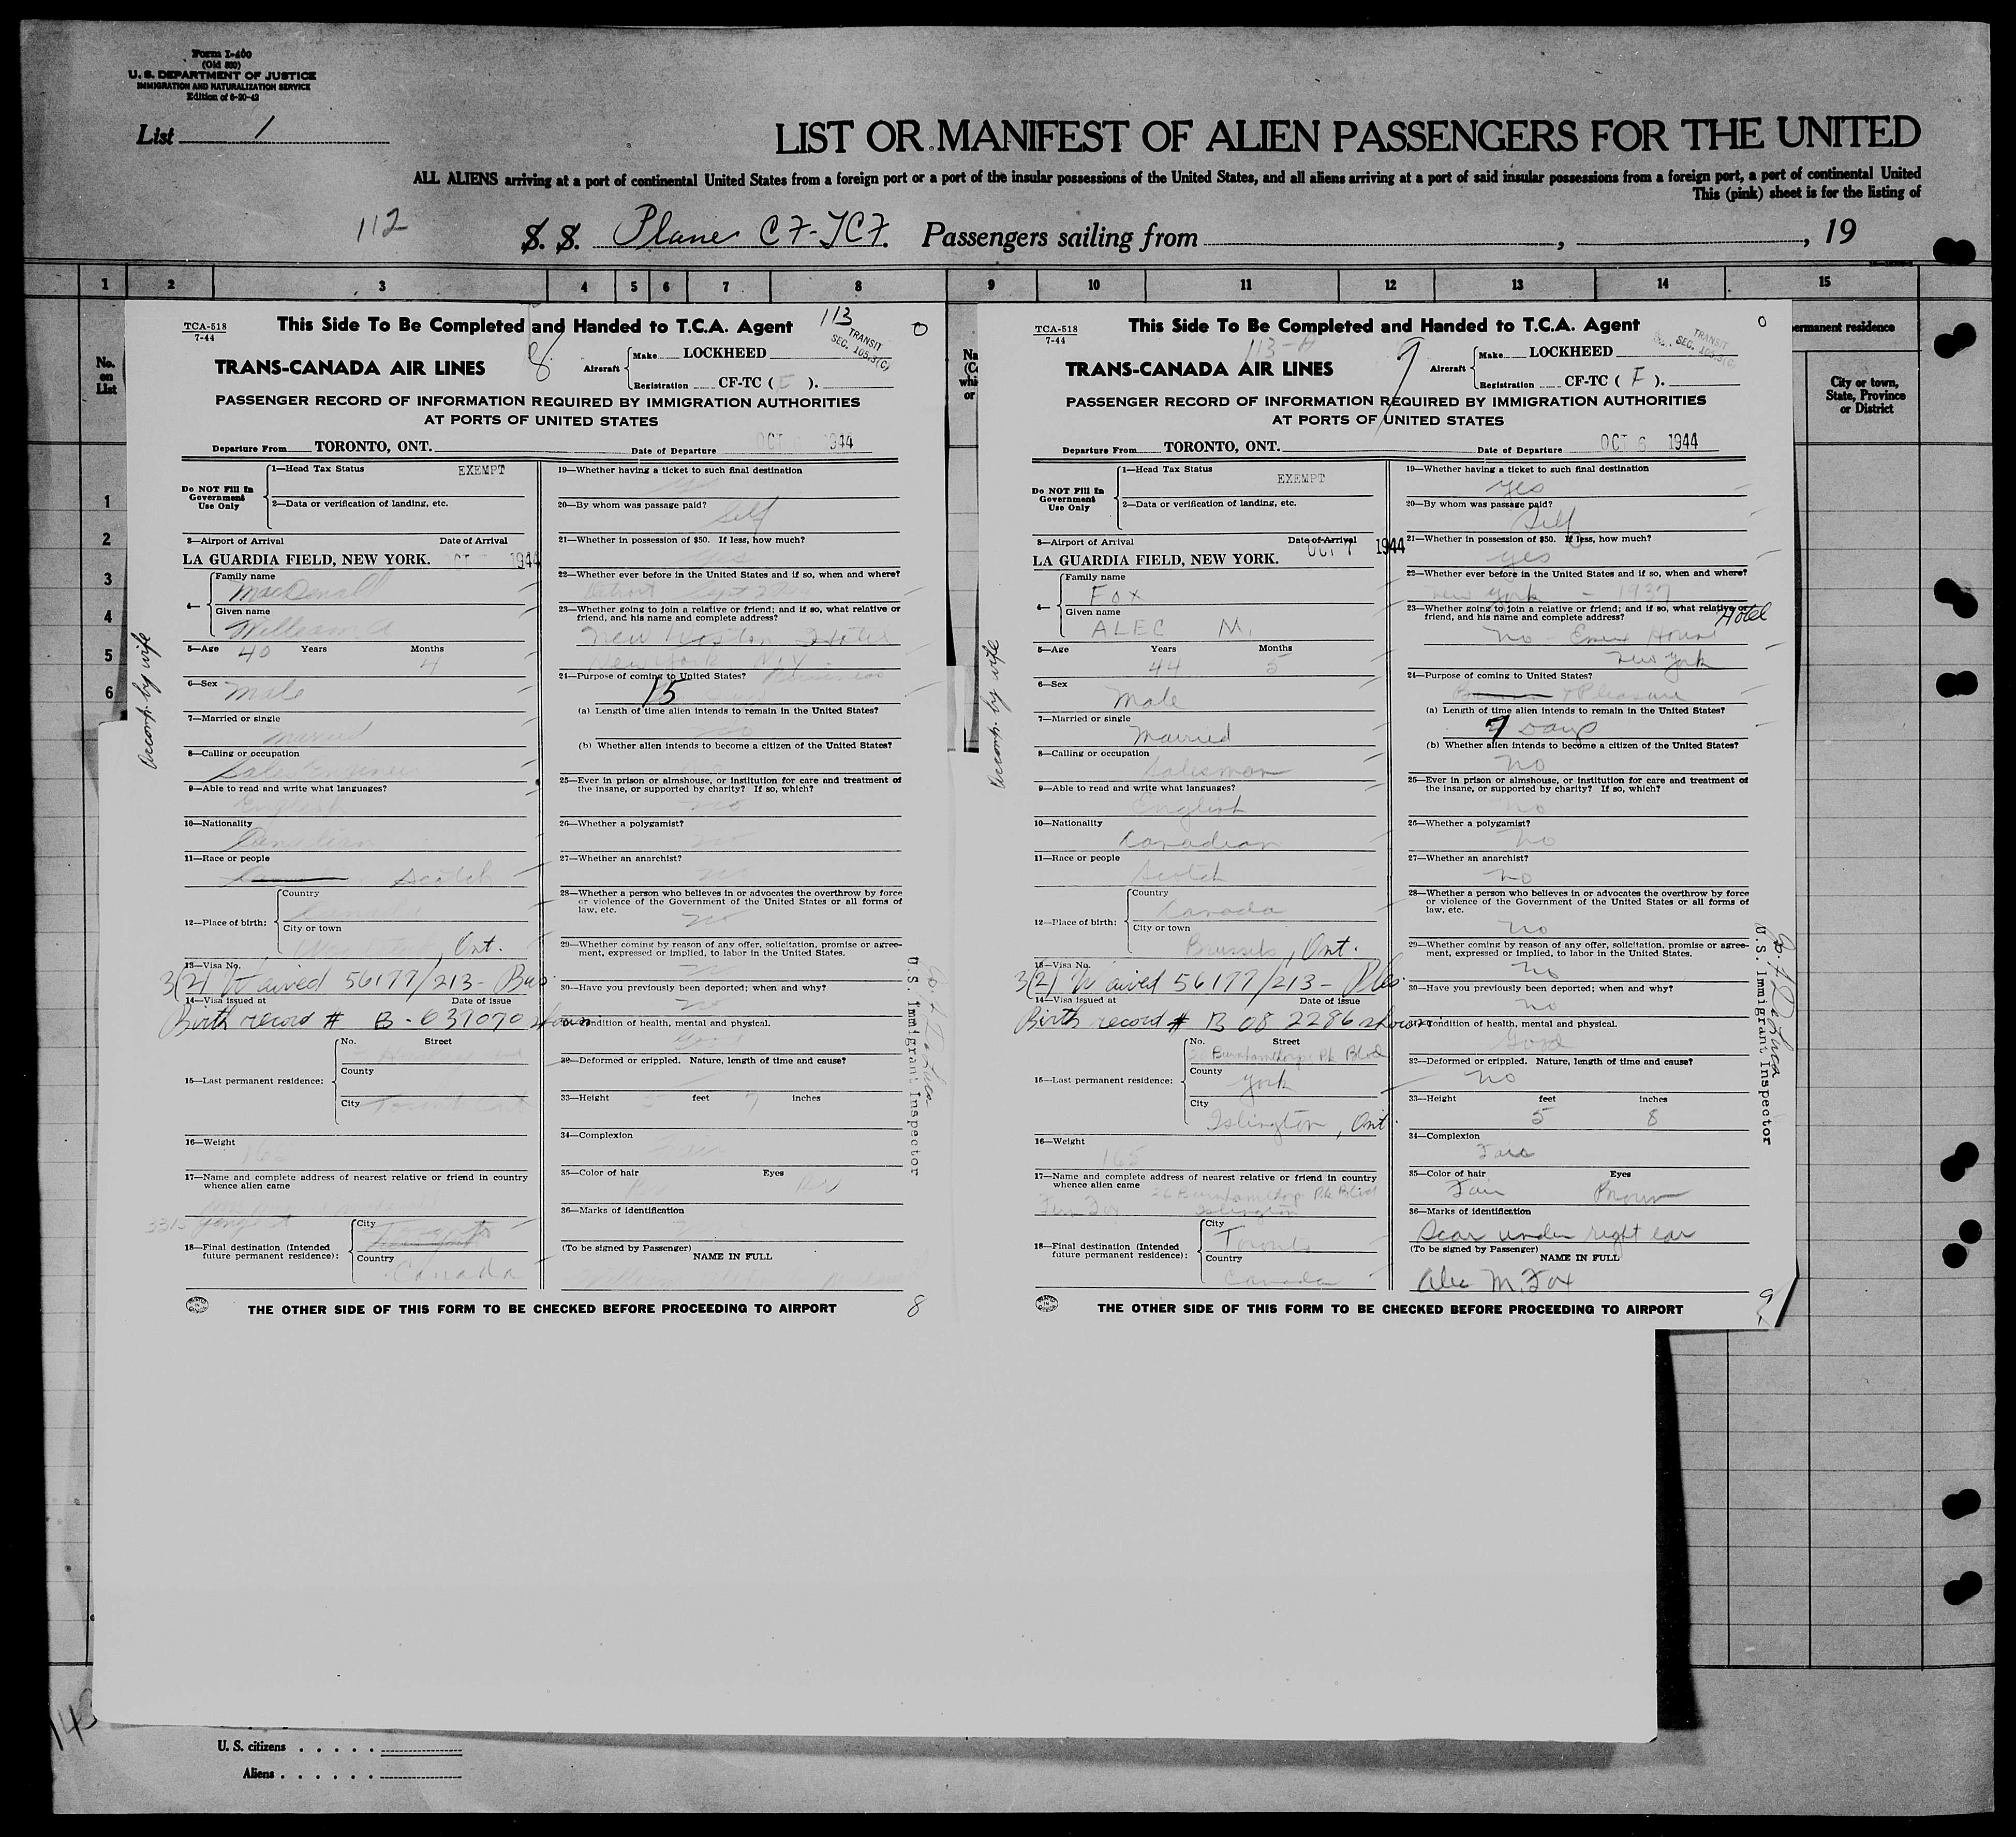 Form I-400
(Old 500)
U. S. DEPARTMENT OF JUSTICE
IMMIGRATION AND NATURALIZATION SERVICE
Edition of 6-30-43
List 1
LIST OR MANIFEST OF ALIEN PASSENGERS FOR THE UNITED
ALL ALIENS arriving at a port of continental United States from a foreign port or a port of the insular possessions of the United States, and all aliens arriving at a port of said insular possessions from a foreign port, a port of continental United
This (pink) sheet is for the listing of
112
S. S. Plane CF-TCF. Passengers sailing from , , 19
1 2 3 4 5 6 7 8 9 10 11 12 13 14 15
No. on List
1
2
3
4
5
6
TCA-518
7-44
This Side To Be Completed and Handed to T.C.A. Agent
113
TRANSIT
SEC. 105.3(C)
TRANS-CANADA AIR LINES
8
Aircraft
Make LOCKHEED
Registration CF-TC ( ).
PASSENGER RECORD OF INFORMATION REQUIRED BY IMMIGRATION AUTHORITIES
AT PORTS OF UNITED STATES
Departure From TORONTO, ONT. Date of Departure OCT 6 1944
Do NOT Fill In Government Use Only
1—Head Tax Status EXEMPT
2—Data or verification of landing, etc.
3—Airport of Arrival Date of Arrival
LA GUARDIA FIELD, NEW YORK. 1944
4—
Family name
Given name
William
Accomp. by wife
5—Age 40 Years Months 4
6—Sex
Male
7—Married or single
Married
8—Calling or occupation
9—Able to read and write what languages?
English
10—Nationality
Canadian
11—Race or people
Scotch
12—Place of birth:
Country
Canada
City or town
, Ont.
13—Visa No.
3(2) Waived 56177/213 - Bus
14—Visa issued at Date of issue
Birth record # B - 037070 shown
15—Last permanent residence:
No. Street
County
City
16—Weight
17—Name and complete address of nearest relative or friend in country
whence alien came
18—Final destination (Intended
future permanent residence):
City
Toronto
Country
Canada
19—Whether having a ticket to such final destination
yes
20—By whom was passage paid?
Self
21—Whether in possession of $50. If less, how much?
yes
22—Whether ever before in the United States and if so, when and where?
Detroit
23—Whether going to join a relative or friend; and if so, what relative or
friend, and his name and complete address?
New Weston Hotel
New York N.Y.
24—Purpose of coming to United States? Business
15
(a) Length of time alien intends to remain in the United States?
no
(b) Whether alien intends to become a citizen of the United States?
25—Ever in prison or almshouse, or institution for care and treatment of
the insane, or supported by charity? If so, which?
no
26—Whether a polygamist?
no
27—Whether an anarchist?
no
28—Whether a person who believes in or advocates the overthrow by force
or violence of the Government of the United States or all forms of
law, etc.
no
29—Whether coming by reason of any offer, solicitation, promise or agree-
ment, expressed or implied, to labor in the United States.
no
30—Have you previously been deported; when and why?
no
Condition of health, mental and physical.
Good
32—Deformed or crippled. Nature, length of time and cause?
33—Height 5 feet 7 inches
34—Complexion
35—Color of hair Eyes
36—Marks of identification
(To be signed by Passenger) NAME IN FULL
U.S. Immigrant Inspector
THE OTHER SIDE OF THIS FORM TO BE CHECKED BEFORE PROCEEDING TO AIRPORT
8
TCA-518
7-44
This Side To Be Completed and Handed to T.C.A. Agent
113-A
TRANSIT
SEC. 105.3(C)
TRANS-CANADA AIR LINES
9
Aircraft
Make LOCKHEED
Registration CF-TC ( F ).
PASSENGER RECORD OF INFORMATION REQUIRED BY IMMIGRATION AUTHORITIES
AT PORTS OF UNITED STATES
Departure From TORONTO, ONT. Date of Departure OCT 6 1944
Do NOT Fill In Government Use Only
1—Head Tax Status EXEMPT
2—Data or verification of landing, etc.
3—Airport of Arrival Date of Arrival
LA GUARDIA FIELD, NEW YORK. OCT 7 1944
4—
Family name
Fox
Given name
ALEC M.
Accomp. by wife
5—Age Years 44 Months 5
6—Sex
Male
7—Married or single
Married
8—Calling or occupation
Salesman
9—Able to read and write what languages?
English
10—Nationality
Canadian
11—Race or people
Scotch
12—Place of birth:
Country
Canada
City or town
Brussels, Ont.
13—Visa No.
3(2) Waived 56177/213 - Ples
14—Visa issued at Date of issue
Birth record # B 08 2286 shown
15—Last permanent residence:
No. Street
Burnhamthorpe Pk Blvd
County
York
City
Islington, Ont
16—Weight
165
17—Name and complete address of nearest relative or friend in country
whence alien came 26 Burnhamthorp Pk Blvd
Fox Islington
18—Final destination (Intended
future permanent residence):
City
Toronto
Country
Canada
19—Whether having a ticket to such final destination
yes
20—By whom was passage paid?
Self
21—Whether in possession of $50. If less, how much?
yes
22—Whether ever before in the United States and if so, when and where?
New York - 1937
23—Whether going to join a relative or friend; and if so, what relative or
friend, and his name and complete address? Hotel
no - Essex House
New York
24—Purpose of coming to United States?
Pleasure
(a) Length of time alien intends to remain in the United States?
7 Days
(b) Whether alien intends to become a citizen of the United States?
no
25—Ever in prison or almshouse, or institution for care and treatment of
the insane, or supported by charity? If so, which?
no
26—Whether a polygamist?
no
27—Whether an anarchist?
no
28—Whether a person who believes in or advocates the overthrow by force
or violence of the Government of the United States or all forms of
law, etc.
no
29—Whether coming by reason of any offer, solicitation, promise or agree-
ment, expressed or implied, to labor in the United States.
no
30—Have you previously been deported; when and why?
no
Condition of health, mental and physical.
Good
32—Deformed or crippled. Nature, length of time and cause?
no
33—Height feet inches
5 8
34—Complexion
Fair
35—Color of hair Eyes
Fair Brown
36—Marks of identification
Scar under right ear
(To be signed by Passenger) NAME IN FULL
Alec M. Fox
U.S. Immigrant Inspector
THE OTHER SIDE OF THIS FORM TO BE CHECKED BEFORE PROCEEDING TO AIRPORT
9
ermanent residence
City or town,
State, Province
or District
U. S. citizens
Aliens